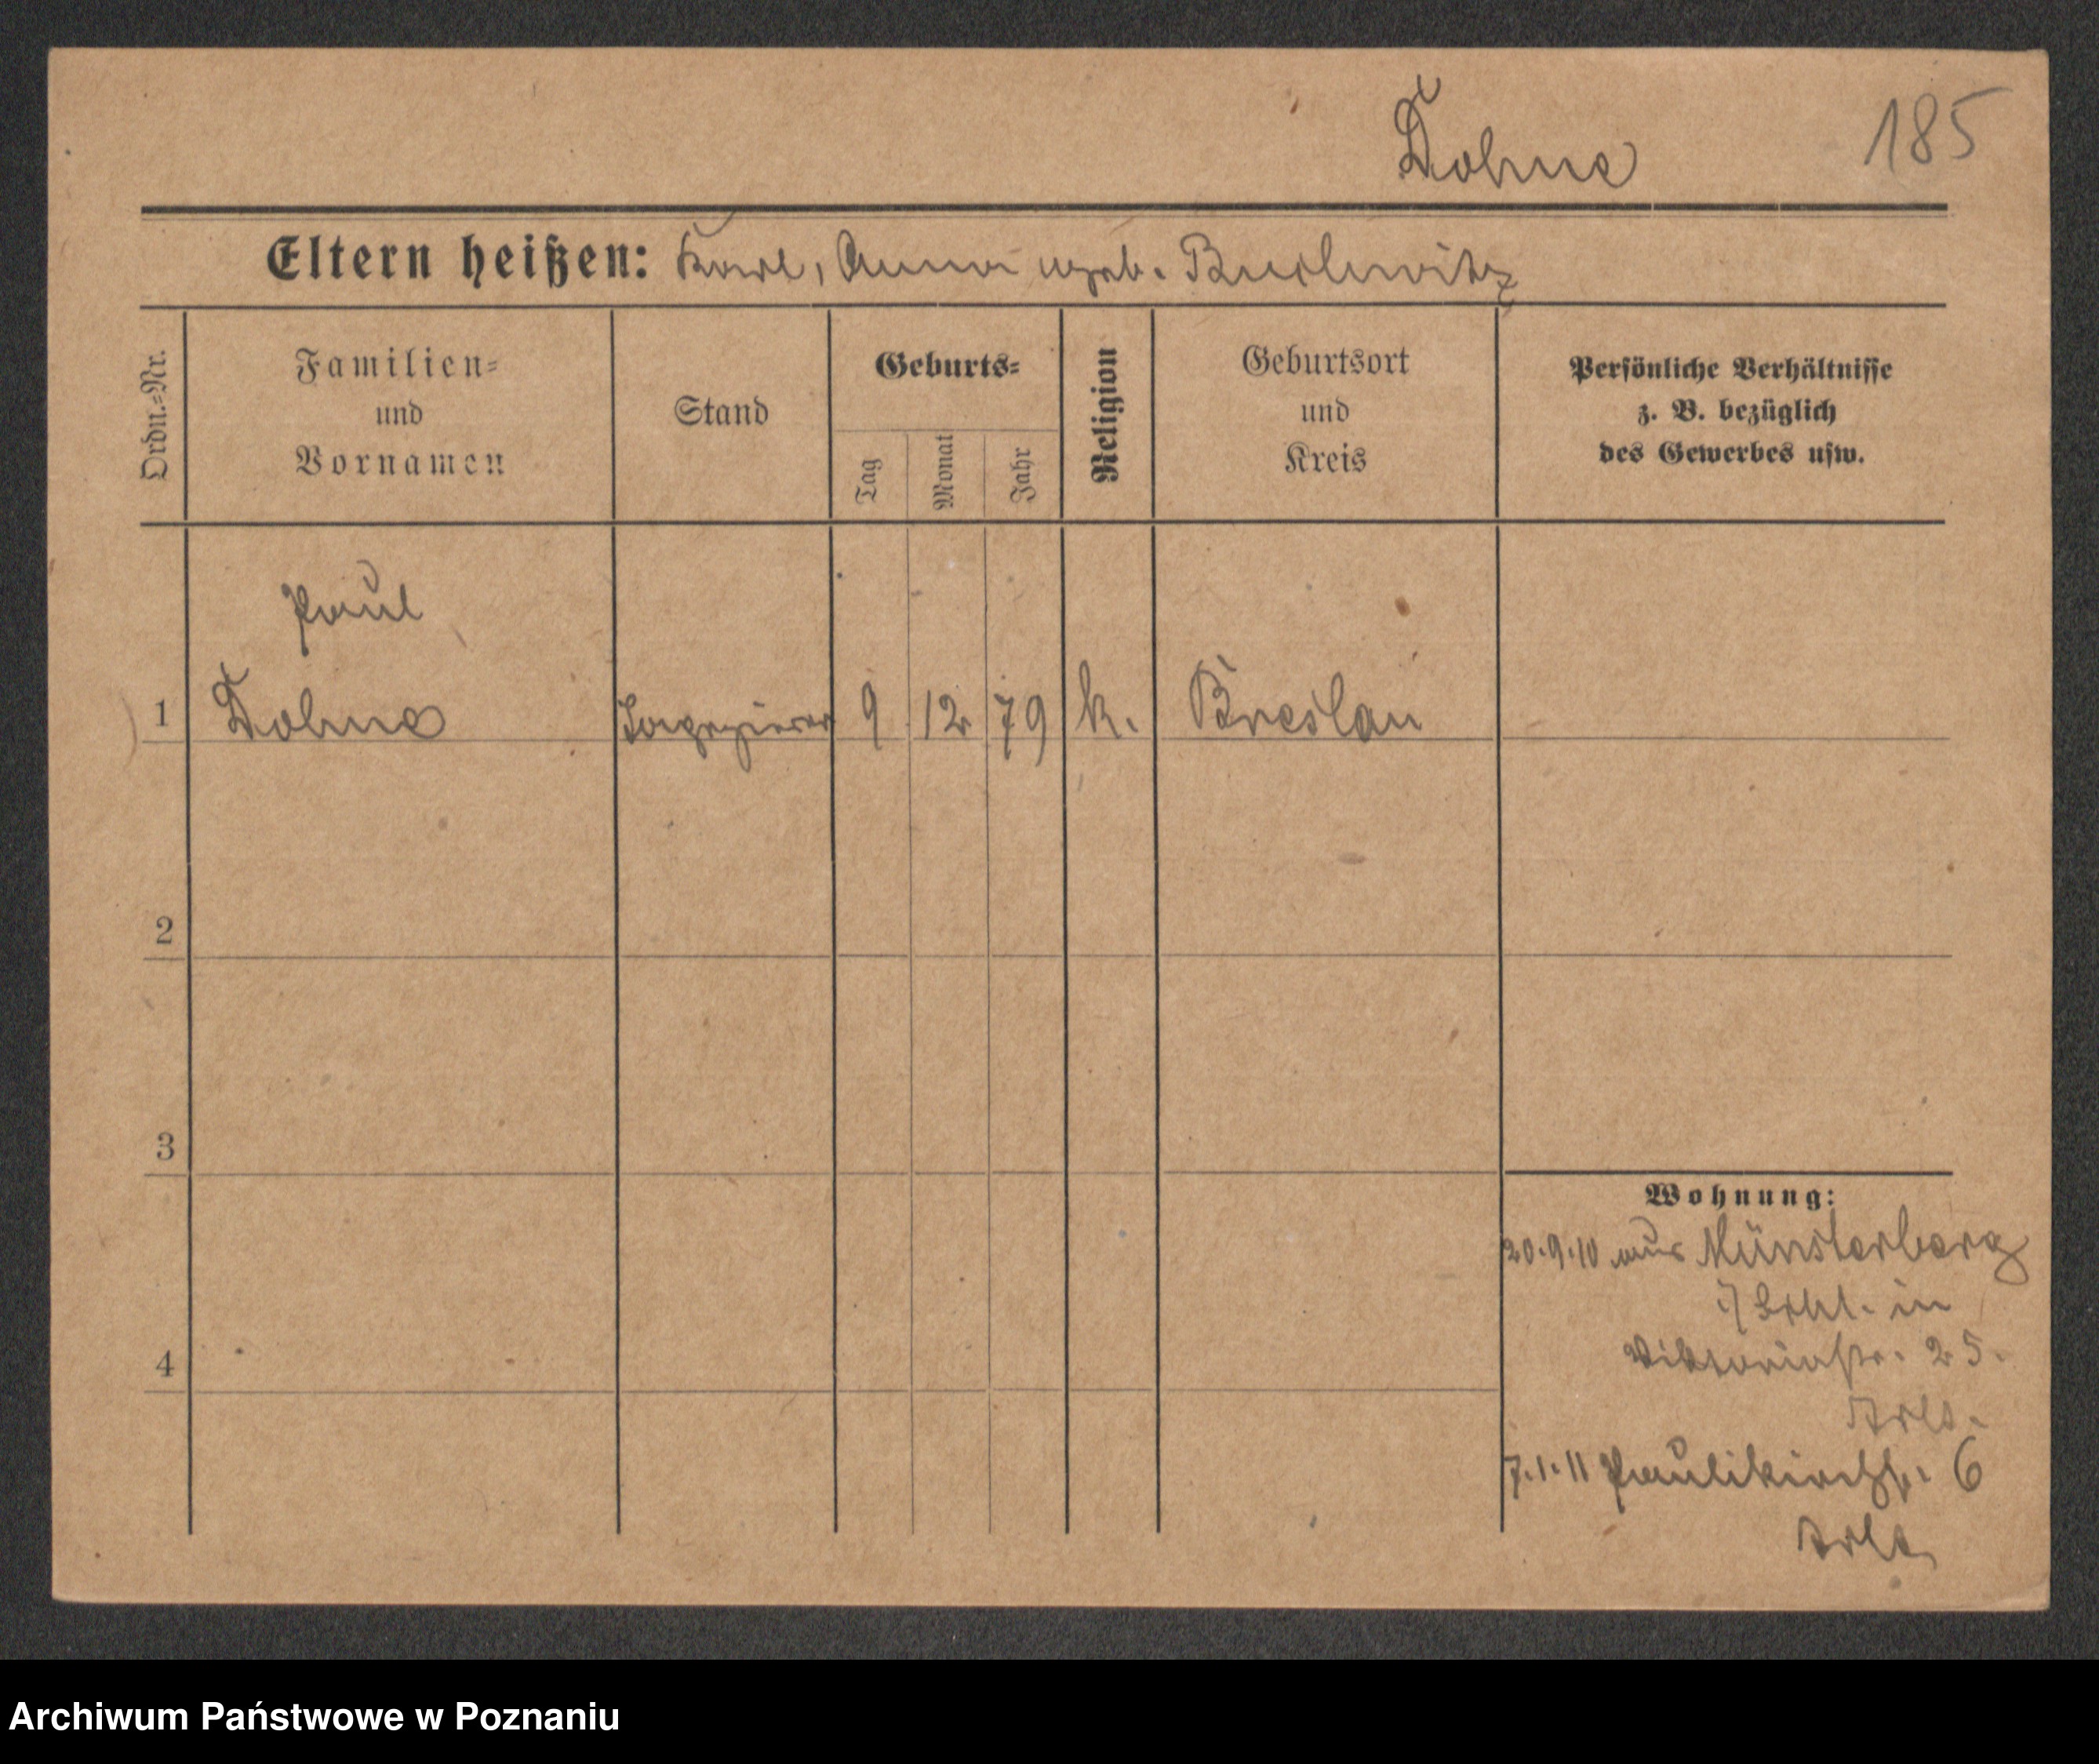 Dohne 185
Eltern heißen: Karl, Anna geb.
Ordn.-Nr.
Familien-
und
Vornamen
Stand
Geburts-
Tag
Monat
Jahr
Religion
Geburtsort
und
Kreis
Persönliche Verhältnisse
z. B. bezüglich
des Gewerbes usw.
Paul
1 Dohne 9 12 79 k. Breslau
2
3
4
Wohnung:
20.9.10 aus Münsterberg
in
Viktoriastr. 25.
7.1.11 Paulikirchstr. 6
Archiwum Państwowe w Poznaniu